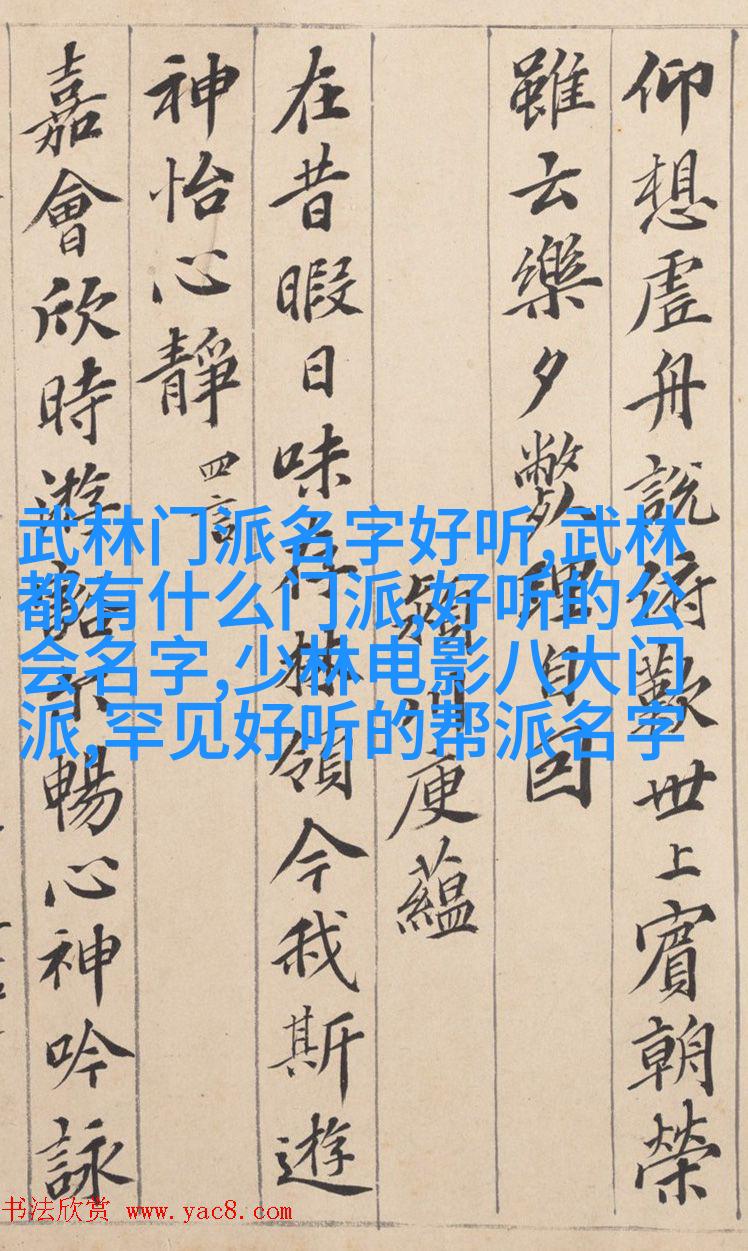 仰想虛舟說俯歎世上賓朝榮
雖云樂夕斃理自因
潁川庾蘊
在昔暇日味存林嶺今我斯遊
神怡心靜 四言
嘉會欣時遊豁尔暢心神吟詠
武林门派名字好听,武林
都有什么门派,好听的公
会名字,少林电影八大门
派,罕见好听的帮派名字
书法欣赏 www.yac8.com